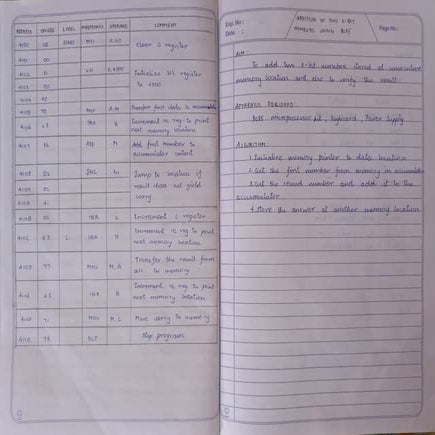 ADDRESS OPCODE LABEL MNEMONICS OPERAND COMMENT
4100 0E START MVI C,00 Clear C register
4101 00
4102 21 LXI H,4500 Initialize HL register
to 4500
4103 00
4104 45
4105 7E MOV A,M Transfer first data to accumulator
4106 23 INX H Increment HL reg. to point
next memory location
4107 86 ADD M Add first number to
accumulator content
4108 D2 JNC Jump to location if
result does not yield
carry
4109
410A 41
410B 0C INR C Increment C register
410C 23 INX H Increment HL reg. to point
next memory location
410D 77 MOV M,A Transfer the result from
acc. to memory
410E 23 INX H Increment HL reg. to point
next memory location
410F 71 MOV M,C Move carry to memory
4110 76 HLT Stop program
Exp. No:
Date :
ADDITION OF TWO 8-BIT
NUMBERS USING 8085
Page No:
AIM:
To add two 8-bit numbers stored at consecutive
memory location and also to verify the result.
APPARATUS REQUIRED:
8085 microprocessor kit, Keyboard, Power Supply
ALGORITHM:
1. Initialize memory pointer to data location
2. Get the first number from memory in accumulator
3. Get the second number and add it to the
accumulator
4. Store the answer at another memory location